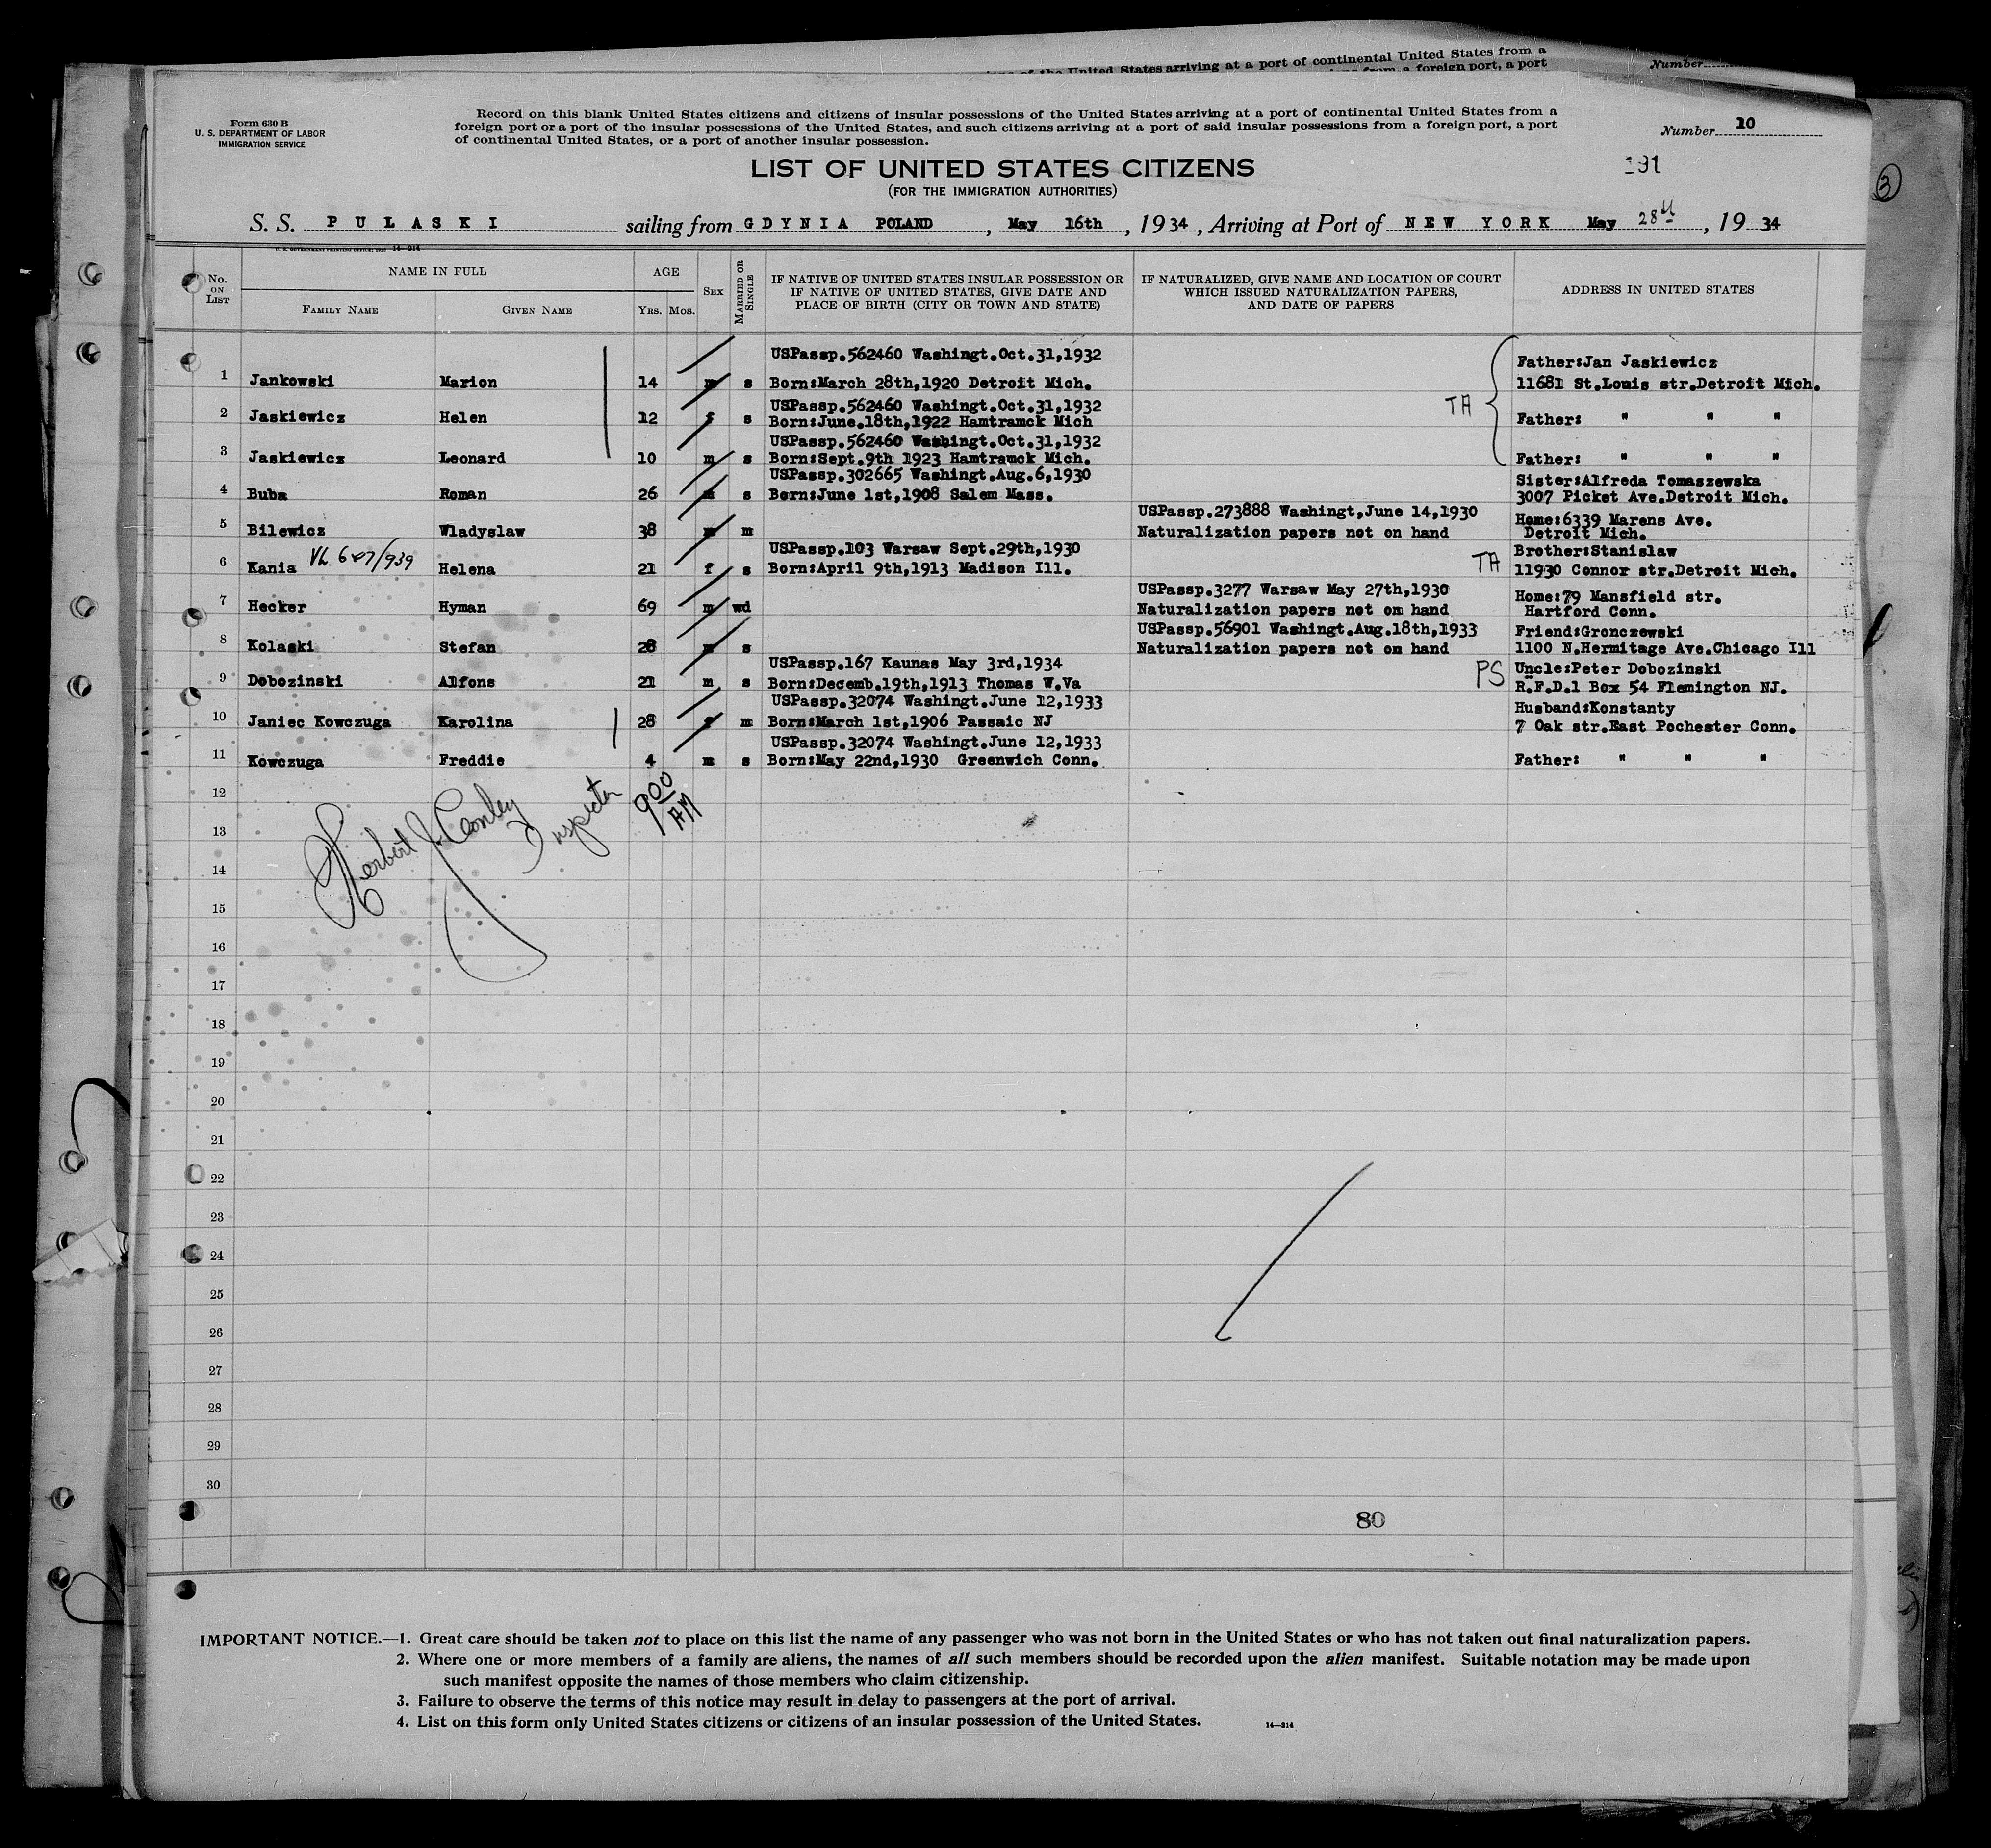 of the United States arriving at a port of continental United States from a
from a foreign port, a port
Number
Form 630 B
U. S. DEPARTMENT OF LABOR
IMMIGRATION SERVICE
Record on this blank United States citizens and citizens of insular possessions of the United States arriving at a port of continental United States from a
foreign port or a port of the insular possessions of the United States, and such citizens arriving at a port of said insular possessions from a foreign port, a port
of continental United States, or a port of another insular possession.
Number 10
LIST OF UNITED STATES CITIZENS
(FOR THE IMMIGRATION AUTHORITIES)
191
3
S. S. PULASKI sailing from GDYNIA POLAND, May 16th, 1934, Arriving at Port of NEW YORK May 28th, 1934
14-214
No. ON LIST
NAME IN FULL
FAMILY NAME
GIVEN NAME
AGE
YRS. MOS.
SEX
MARRIED OR SINGLE
IF NATIVE OF UNITED STATES INSULAR POSSESSION OR
IF NATIVE OF UNITED STATES, GIVE DATE AND
PLACE OF BIRTH (CITY OR TOWN AND STATE)
IF NATURALIZED, GIVE NAME AND LOCATION OF COURT
WHICH ISSUED NATURALIZATION PAPERS,
AND DATE OF PAPERS
ADDRESS IN UNITED STATES
USPassp.562460 Washingt.Oct.31,1932 Father:Jan Jaskiewicz
1 Jankowski Marion 14 m s Born:March 28th,1920 Detroit Mich. 11681 St.Louis str.Detroit Mich.
USPassp.562460 Washingt.Oct.31,1932
2 Jaskiewicz Helen 12 f s Born:June.18th,1922 Hamtramck Mich TA Father: " " "
USPassp.562460 Washingt.Oct.31,1932
3 Jaskiewicz Leonard 10 m s Born:Sept.9th 1923 Hamtramck Mich. Father: " " "
USPassp.302665 Washingt.Aug.6,1930 Sister:Alfreda Tomaszewska
4 Buba Roman 26 m s Born:June 1st,1908 Salem Mass. 3007 Picket Ave.Detroit Mich.
USPassp.273888 Washingt,June 14,1930 Home:6339 Marens Ave.
5 Bilewicz Wladyslaw 38 m m Naturalization papers not on hand Detroit Mich.
USPassp.103 Warsaw Sept.29th,1930 Brother:Stanislaw
6 Kania Helena 21 f s Born:April 9th,1913 Madison Ill. TA 11930 Connor str.Detroit Mich.
USPassp.3277 Warsaw May 27th,1930 Home:79 Mansfield str.
7 Hecker Hyman 69 m wd Naturalization papers not on hand Hartford Conn.
USPassp.56901 Washingt.Aug.18th,1933 Friend:Gronczewski
8 Kolaski Stefan 28 m s Naturalization papers not on hand 1100 N.Hermitage Ave.Chicago Ill
USPassp.167 Kaunas May 3rd,1934 Uncle:Peter Dobozinski
9 Dobozinski Alfons 21 m s Born:Decemb.19th,1913 Thomas W.Va PS R.F.D.1 Box 54 Flemington NJ.
USPassp.32074 Washingt.June 12,1933 Husband:Konstanty
10 Janiec Kowczuga Karolina 28 f m Born:March 1st,1906 Passaic NJ 7 Oak str.East Pochester Conn.
USPassp.32074 Washingt.June 12,1933
11 Kowczuga Freddie 4 m s Born:May 22nd,1930 Greenwich Conn. Father: " " "
Herbert J. Conley Inspector 9 00 AM
12
13
14
15
16
17
18
19
20
21
22
23
24
25
26
27
28
29
30
80
IMPORTANT NOTICE.—1. Great care should be taken not to place on this list the name of any passenger who was not born in the United States or who has not taken out final naturalization papers.
2. Where one or more members of a family are aliens, the names of all such members should be recorded upon the alien manifest. Suitable notation may be made upon
such manifest opposite the names of those members who claim citizenship.
3. Failure to observe the terms of this notice may result in delay to passengers at the port of arrival.
4. List on this form only United States citizens or citizens of an insular possession of the United States.
14—214